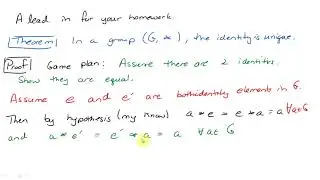 A lead in for your homework.
Theorem In a group (G, *), the identity is unique.
Proof Game plan: Assume there are 2 identities.
Show they are equal.
Assume e and e' are both identity elements in G.
Then by hypothesis (my know) a * e = e * a = a ∀a∈G
and a * e' = e' * a = a ∀a∈G